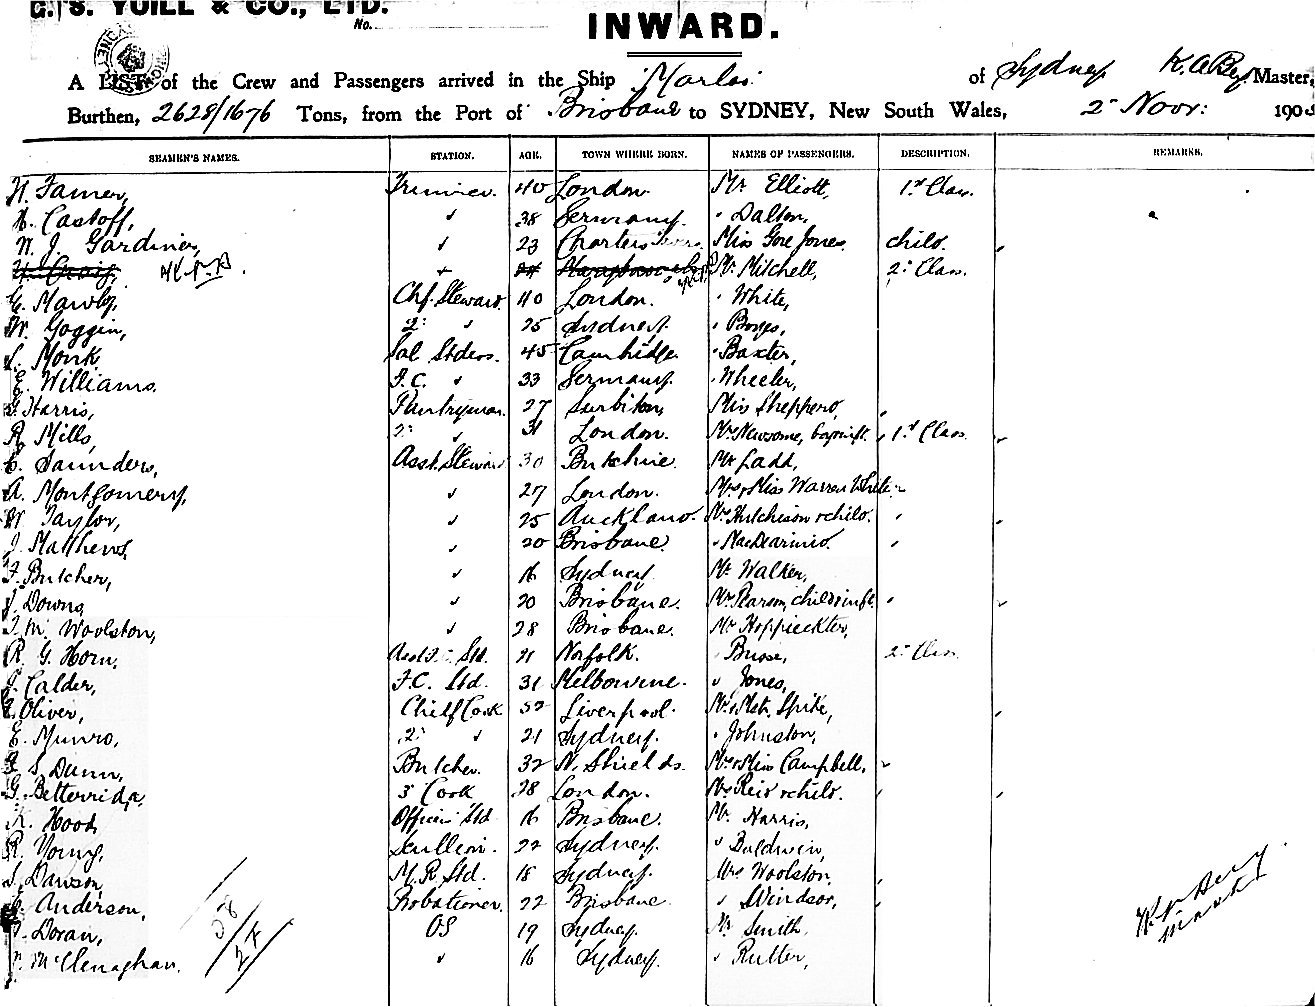 G. S. YUILL & CO., LTD.
No.
INWARD.
A LIST of the Crew and Passengers arrived in the Ship of Sydney Master,
Burthen, 2628/1676 Tons, from the Port of Brisbane to SYDNEY, New South Wales, 2 Novr: 190
SEAMEN'S NAMES. STATION. AGE. TOWN WHERE BORN. NAMES OF PASSENGERS. DESCRIPTION. REMARKS.
Trimmer 40 London Mr Elliott, 1st Class.
H. Castoff, " 38 Germany. " Dalton,
W. J. Gardiner, " 23 Charters Miss Gore Jones. child.
H. Craig, " Mr Mitchell, 2" Class.
E. Mawby, Chf. Steward 40 London. " White,
W. Goggin, 2" " 25 Sydney. " Boyes,
S. Monk Sal. 45 Cambridge " Baxter,
E. Williams. F.C. " 33 Germany. " Wheeler,
G. Harris, Pantryman. 27 Surbiton, Miss Shepperd,
R. Mills, 2" " 31 London. Mrs Newsome, 1st Class.
C. Saunders, Asst. Steward 30 Mr Ladd,
A. Montgomery, " 27 London. Mrs & Miss Warren White
W Taylor, " 25 Auckland. Mrs Hutchison & child.
J. Matthews " 20 Brisbane.
F. Butcher, " 16 Sydney. Mr Walker,
J. Downs " 20 Brisbane. Mrs Pearson, child & inft.
T. M. Woolston, " 28 Brisbane.
R. G. Horn, Std. 21 Norfolk. " Busse, 2" Class.
J. Calder, F.C. Std. 31 Melbourne. " Jones,
Oliver, Chief Cook 32 Liverpool. Mr & Mstr. Spike,
E. Munro, 2" " 21 Sydney. " Johnston,
S. Dunn, Butcher. 32 N. Shields. Mrs & Miss Campbell,
G. Betteridge 3rd Cook 28 London. Mrs Reid & child.
R. Hood, Officers Std 16 Brisbane. Mr. Harris,
R. Young, Scullion. 22 Sydney. " Baldwin,
Dawson, M.R. Std. 18 Sydney. Mrs Woolston,
Anderson, Probationer. 22 Brisbane. " Windsor,
Doran, OS 19 Sydney. Mr Smith,
McClenaghan. " 16 Sydney. " Rutter,
58/27